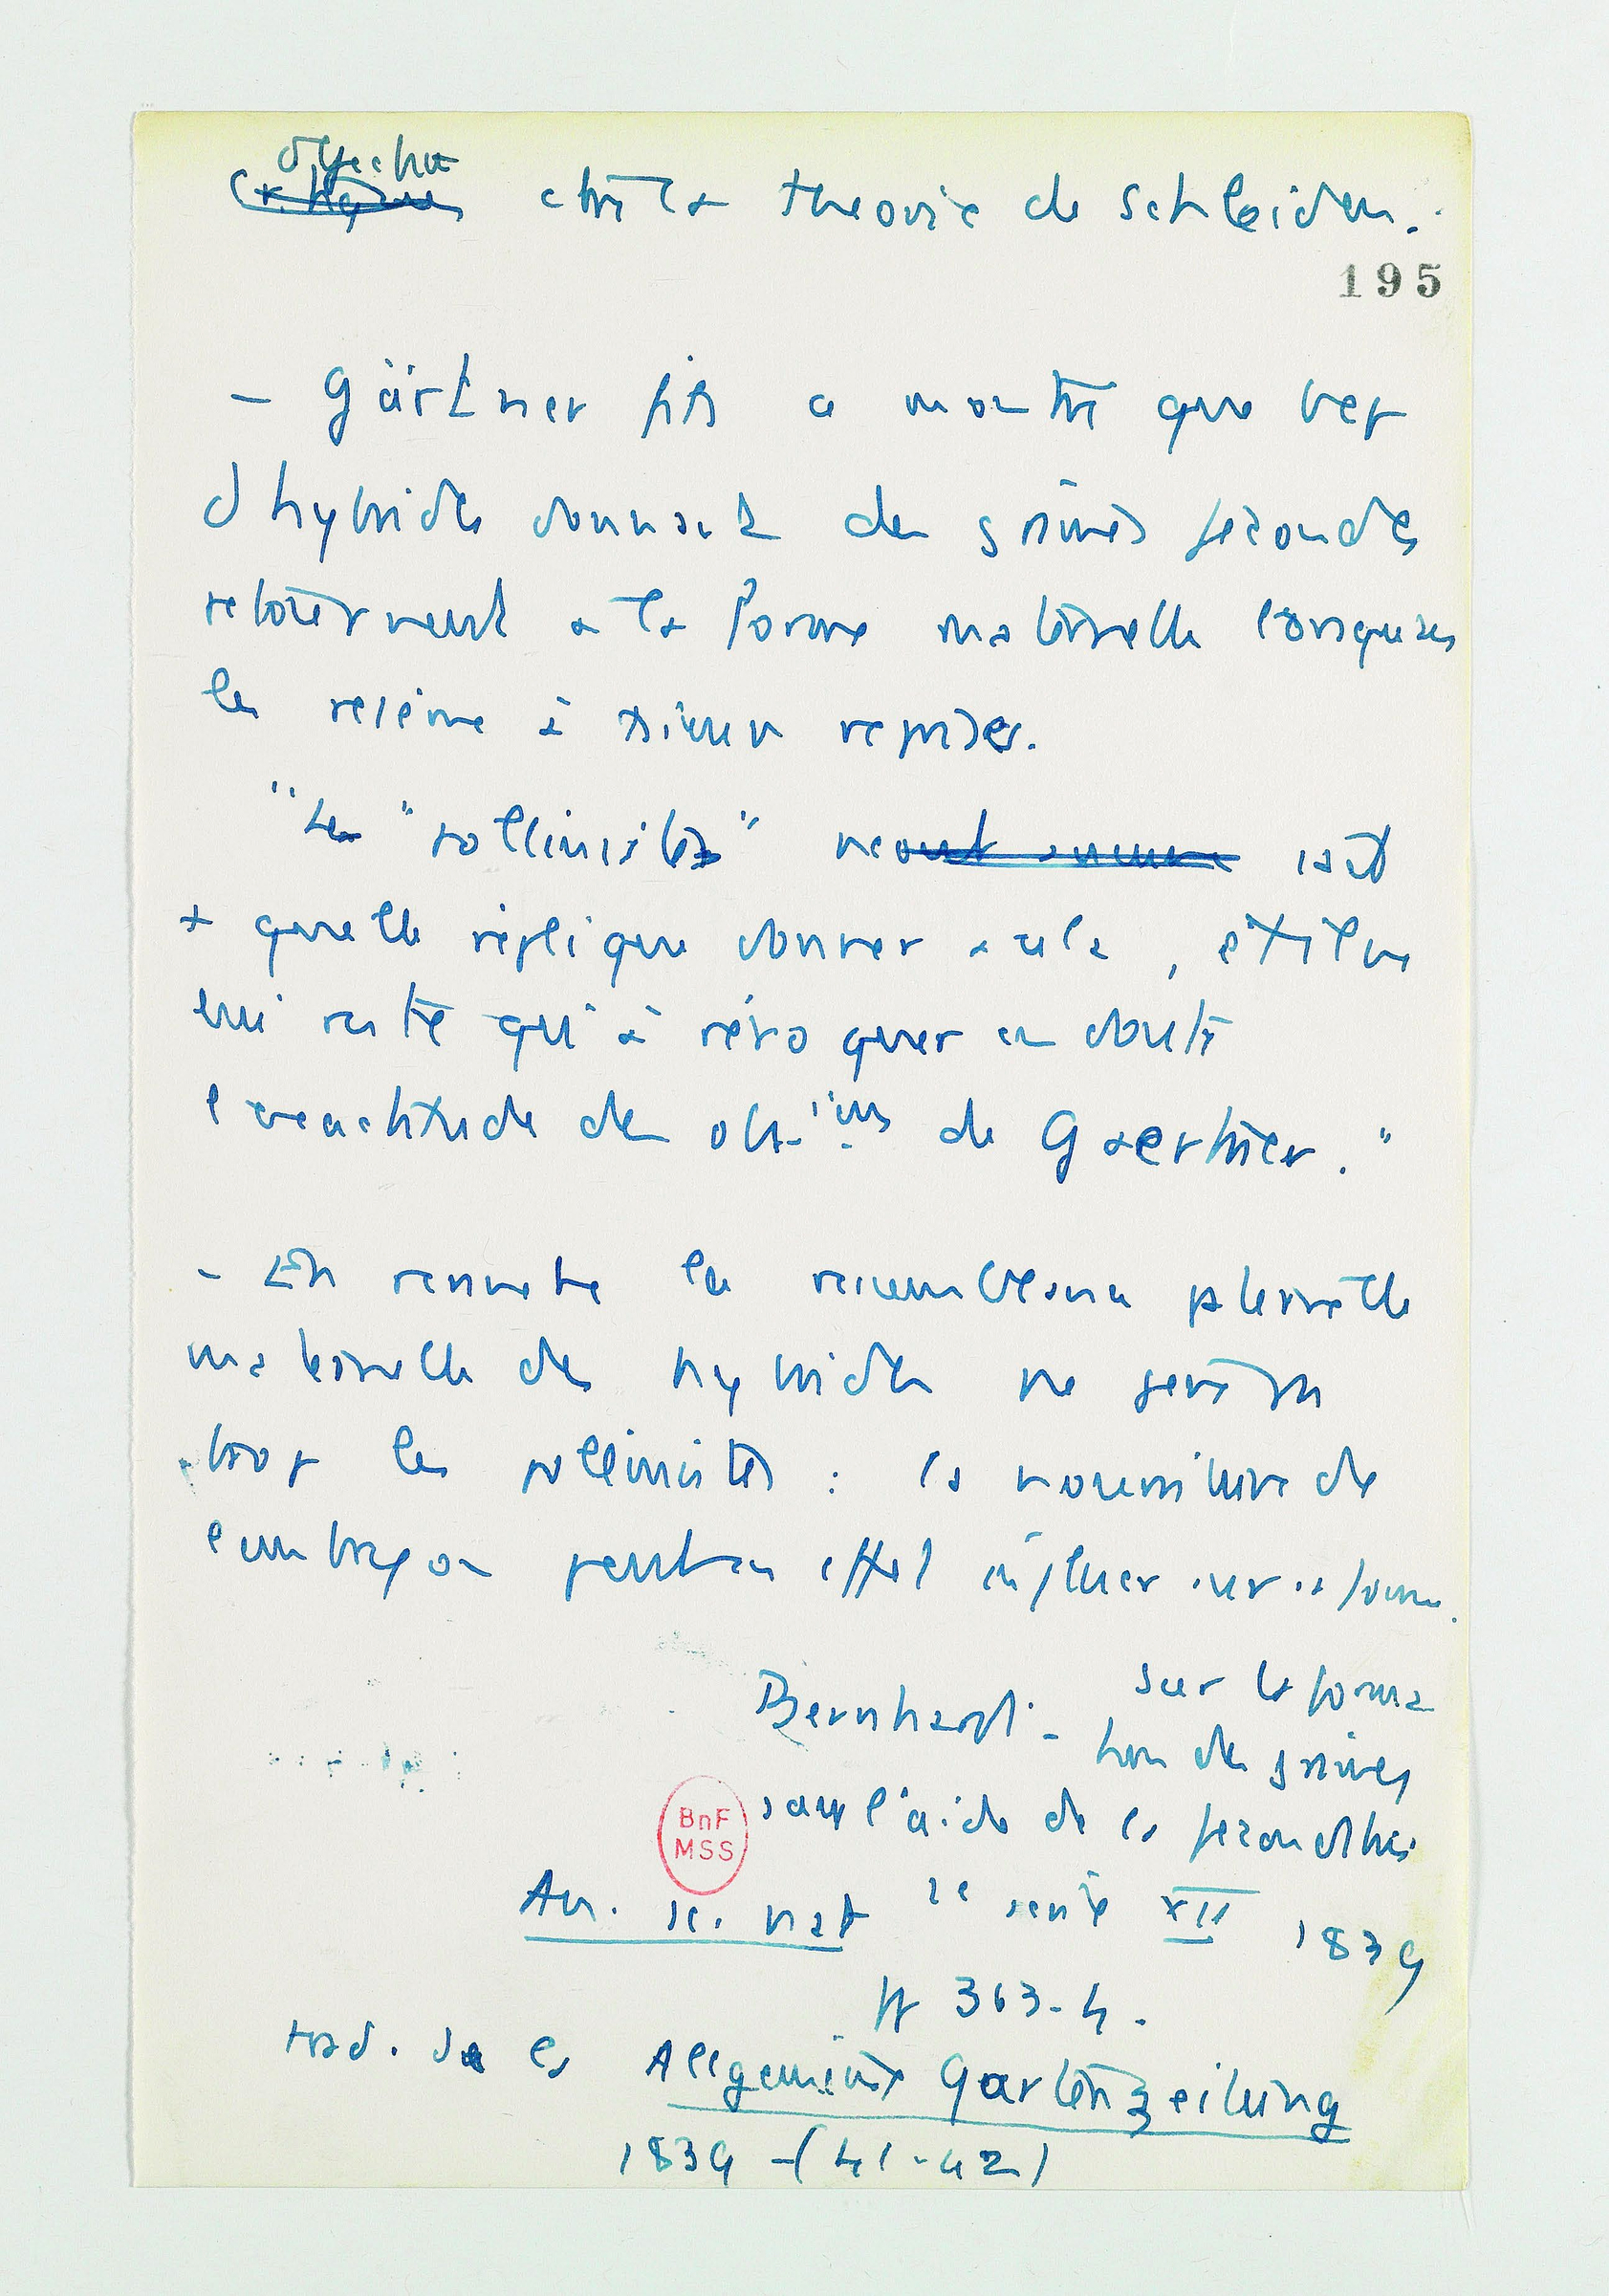 Objections
ctre la theorie de Schleiden.
195
- Gärtner fils a montré que bcp
d'hybrides donnant des graines fécondes
retournent a la forme maternelle lorsqu'on
les resème à reprises.
"Les "pollinistes" sait
+ quelle réplique donner a cela, et il ne
lui reste qu'à révoquer en doute
l'exactitude des obs.ions de Gaertner."
- En revanche la ressemblance plus
maternelle des hybrides ne gêne
trop les pollinistes : la nourriture de
l'embryon peut en effet influer sur sa forme.
Bernhardi - Sur la forma
tion des graines
sans l'aide de la fécondation
An. sc. nat 2e série XII 1839
pp 363-4.
trad. de la Allgemeine Gartenzeitung
1839 - (41-42)
BnF
MSS